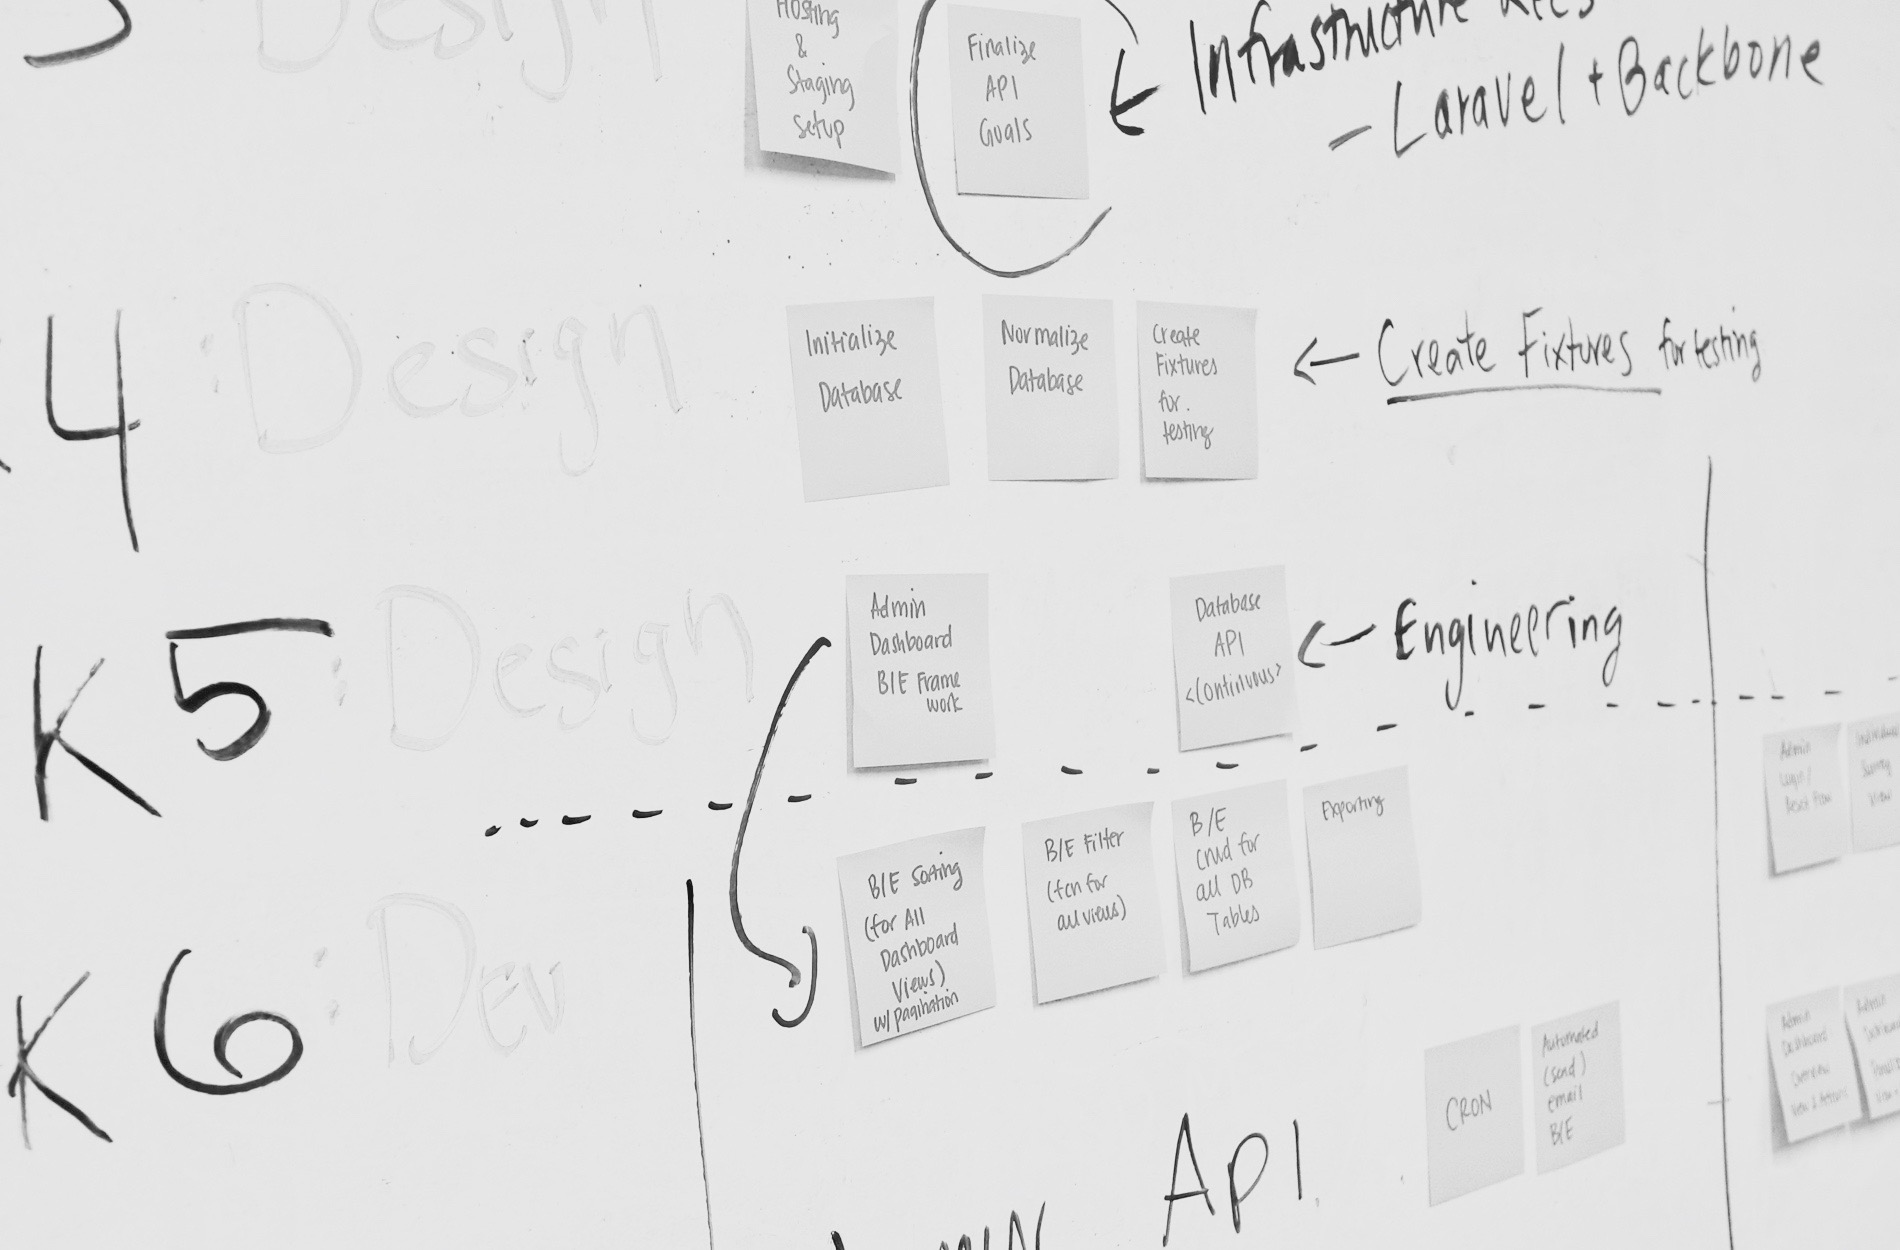 Design
Hosting
&
Staging
Setup
Finalize
API
Goals
Infrastructure
- Laravel + Backbone
4 : Design
Initialize
Database
Normalize
Database
Create
Fixtures
for.
testing
← Create Fixtures for testing
K 5 : Design
Admin
Dashboard
B/E Frame
work
Database
API
<Continuous>
← Engineering
K 6 : Dev
B/E Sorting
(for All
Dashboard
Views)
w/ pagination
B/E Filter
(fcn for
all views)
B/E
crud for
all DB
Tables
Exporting
Admin
Login/
View
CRON
Automated
(send)
email
B/E
Admin
Dashboard
Overview
Admin
API